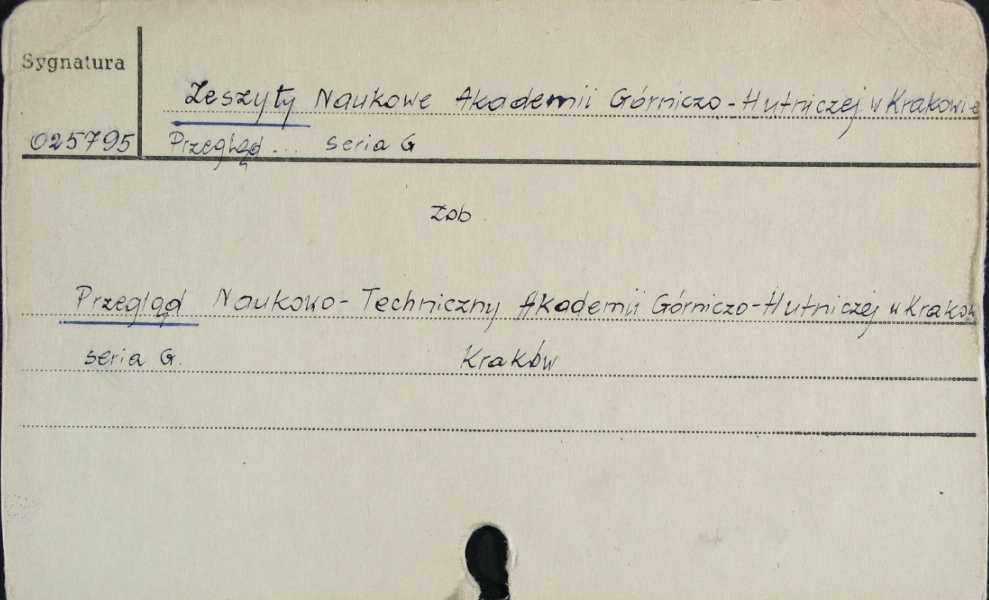 Sygnatura
Zeszyty Naukowe Akademii Górniczo-Hutniczej w Krakowie
025795 Przegląd... seria G
zob.
Przegląd Naukowo-Techniczny Akademii Górniczo-Hutniczej w Krakow
seria G. Kraków